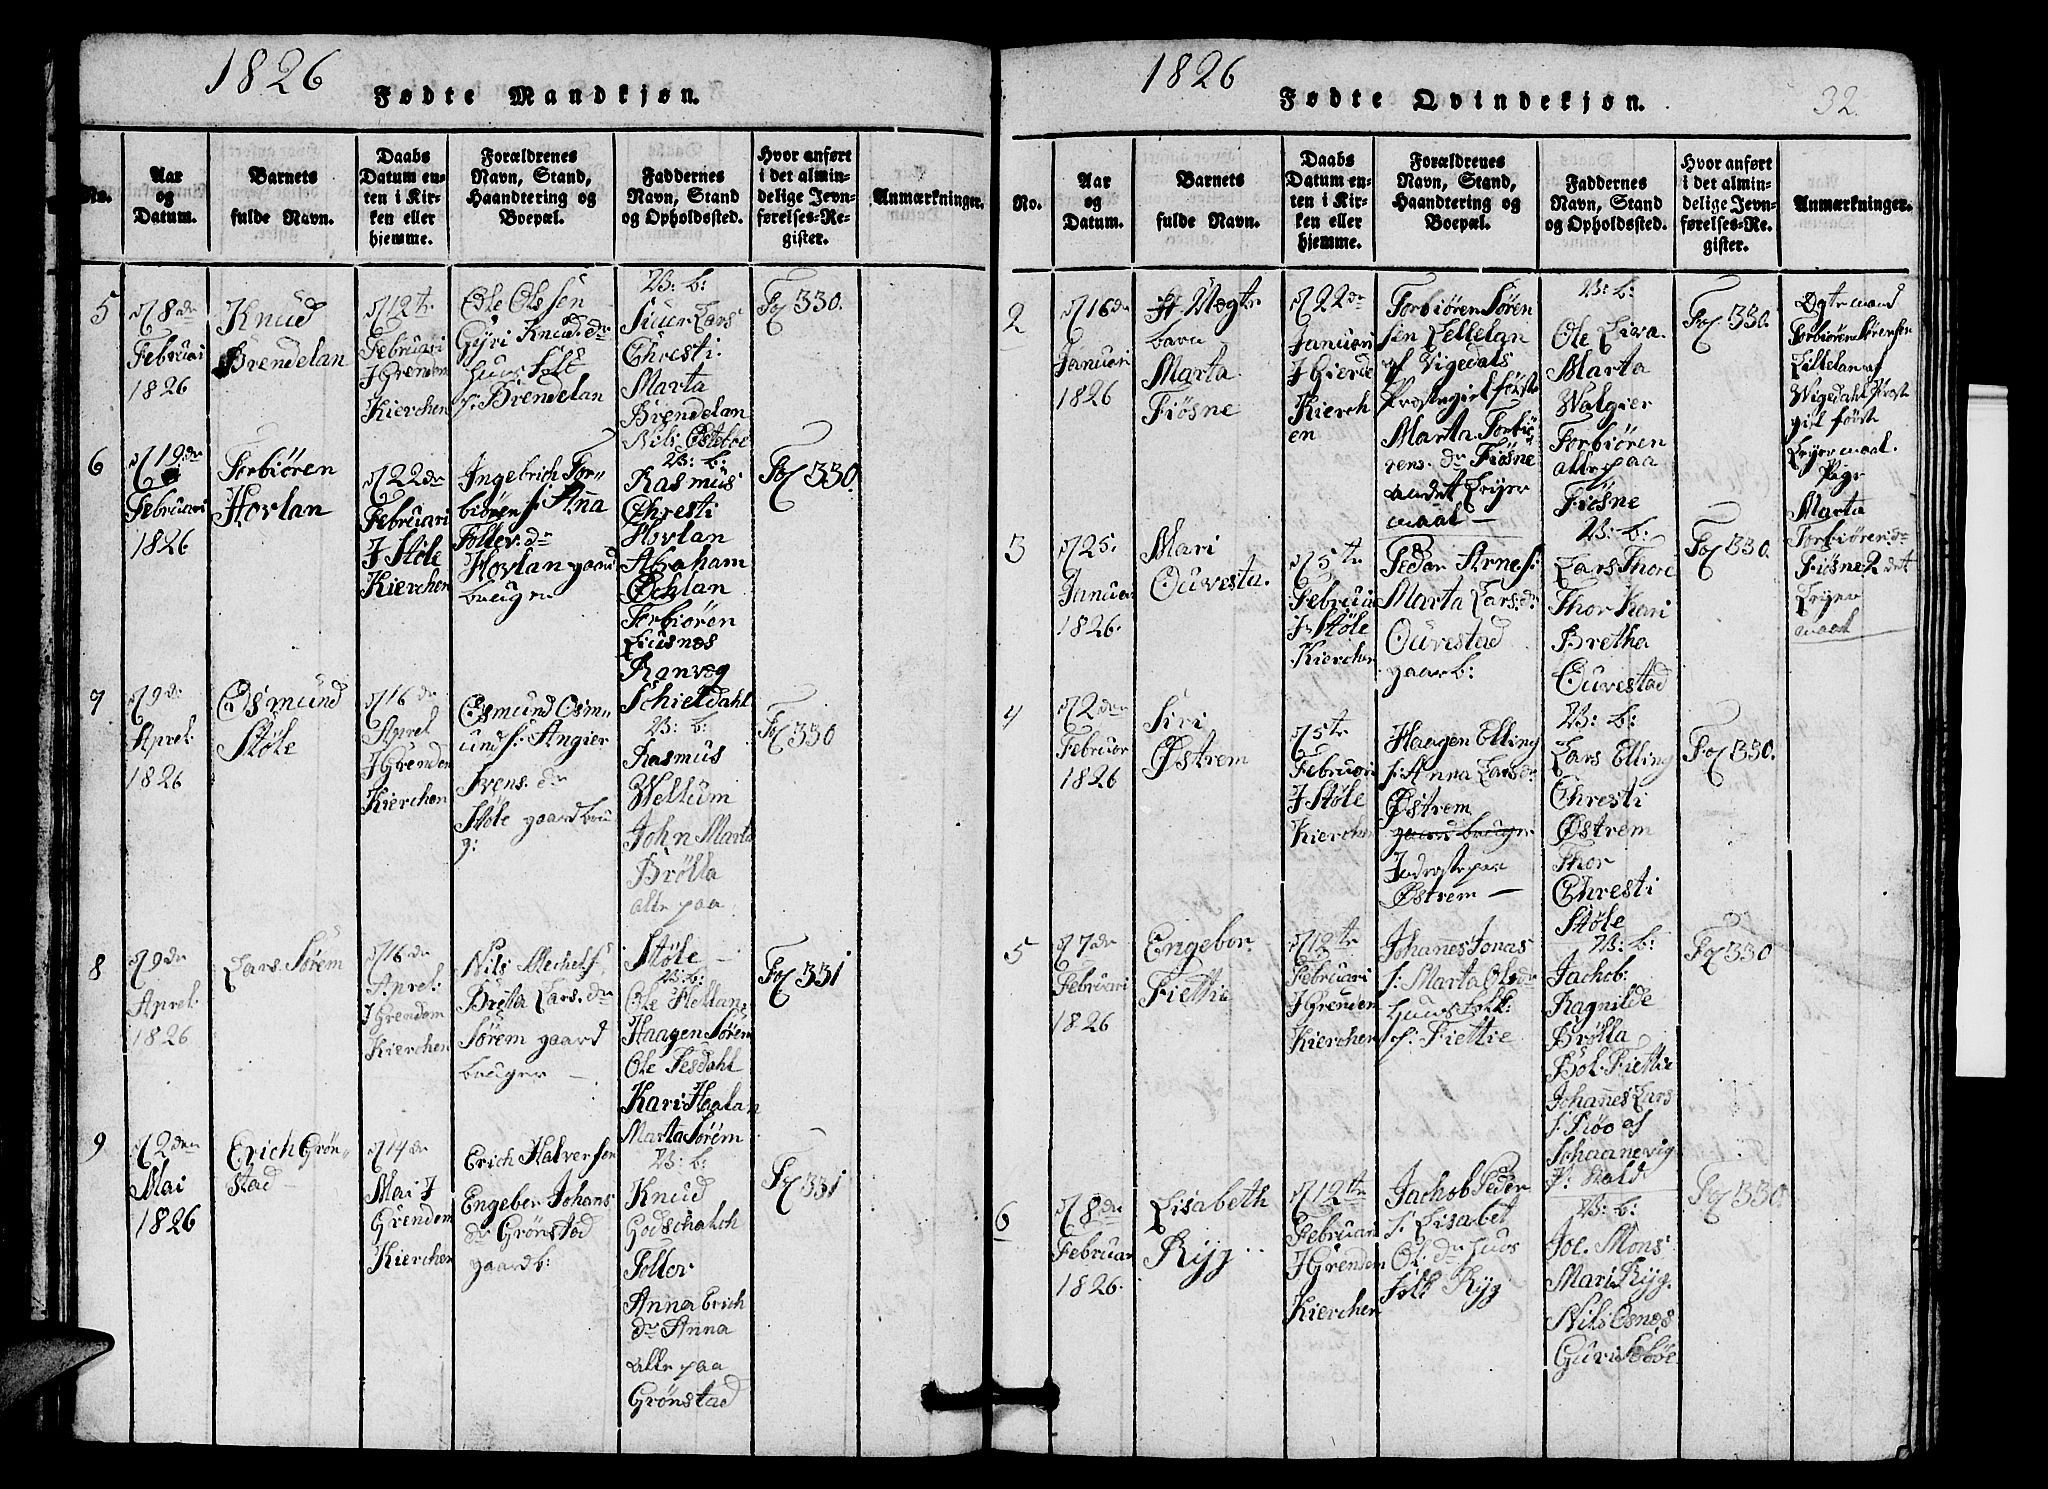 1826
Fødte Mandkjøn.
No.
Aar
og
Datum.
Barnets
fulde Navn.
Daabs
Datum en-
ten i Kir-
ken eller
hjemme.
Forældrenes
Navn, Stand,
Haandtering og
Boepæl.
Faddernes
Navn, Stand
og Opholdssted.
Hvor anført
i det almin-
delige Jevn-
førelses-Re-
gister.
Anmærkninger.
5
d 8de
Februari
1826
Knud
Brendelan
d 12te
Februari
I Grendem
Kierchen
Ole Olssen
Gyri Knud.dr
huus folk
p. Brendelan
V: b:
Siur Lars
Christi
Marta
Brendelan
Nils Østeboe
Fol 330.
6
d 19de
Februari
1826
Torbiören
Hovlan
d 22de
Februari
I Stöle
Kierchen
Ingebrich Tor-
biören f: Anna
Tollev: dr
Hovlan gaard
bruger
V: b:
Rasmus
Christi
Hovlan
Abraham
Öchlan
Torbiören
Liusnes
Ranveg
Schieldahl
Fol 330.
7
d 9de
Aprel:
1826
Osmund
Stöle
d 16de
Aprel
I Grendem
Kierchen
Osmund Osm-
und f: Angier
Svens. dr
Stöle gaardbru
g:
V: b:
Rasmus
Vellum
John Marta
Brölla
alle paa
Stöle
Fol 330
8
d 9de
Aprel:
1826
Lars Sörem
d 16de
Aprel:
I Grendem
Kierchen
Nils Mechel f:
Brita Lars. dr
Sörem gaard
bruger
V: b:
Ole Hellan
Haagen Sörem
Ole Sesdahl
Kari Haalan
Marta Sörem
Fol 331
9
d 2den
Mai
1826
Erich Grön-
stad
d 14de
Mai I
Grendem
Kierchen
Erich Halversen
Engeber Johans
dr Grönstad
gaardb:
V: b:
Knud
Godschalch
Toller
Anna Erich
dr Anna
alle paa
Grönstad
Fol 331
1826
Fødte Qvindekjøn.
32.
No.
Aar
og
Datum.
Barnets
fulde Navn.
Daabs
Datum en-
ten i Kir-
ken eller
hjemme.
Forældrenes
Navn, Stand,
Haandtering og
Boepæl.
Faddernes
Navn, Stand
og Opholdssted.
Hvor anført
i det almin-
delige Jevn-
førelses-Re-
gister.
Anmærkninger.
2
d 16de
Januari
1826
It Uægte
barn
Marta
Fiösne
d 22de
Januari
I Gierde
Kierch
en
Torbiören Sören
sen Lellelan
af Vigedals
Prestegiel förste
Marta Torbiö
rens. dr Fiösne
andet Leijer
maal
V: b:
Ole Siva
Marta
Valgier
Torbiören
alle paa
Fiösne
Fol 330.
Ægte mand
Torbiören Sörensen
Lillelan af
Vigedahl Præst
giel först
Leijermaal
Pige
Marta
Torbiören dr
Fiösne 2det
Leijer
maal
3
d 25.
Januari
1826.
Mari
Ouvesta.
d 5te
Februari
I Stöle
Kierchen
Peder Arne f:
Marta Lars. dr
Ouvestad
gaarb:
V: b:
Lars Thore
Thor Kari
Bretha
Ouvestad
Fol 330.
4
d 2den
Februar
1826
Siri
Østrem
d 5te
Februari
I Stöle
Kierchen
Haagen Elling
f: Anna Lars dr
Østrem
gaard bruger
Inderste paa
Østrem
V: b:
Lars Elling
Christi
Østrem
Thor
Christi
Stöle
Fol 330.
5
d 7de
Februari
1826
Engebor
Fiettie
d 12te
Februari
I Grendem
Kierchen
Johanes Jonas
f: Marta Ols dr
huus folk:
p: Fiettie
V: b:
Jachob
Ragnilde
Brölla
Böl. Fiettie
Johanes Lars
f. Siöo af
Johaanevig
P: Nald
Fol 330
6
d 8de
Februar
1826.
Elisabeth
Ryg
d 12te
Februari
I Grendem
Kierchen
Jachob Peder
f: Elisabet
Ol. dr huus
folk Ryg
V: b:
Joe. Mons
Mari Ryg.
Nils Osnes
Guri Stöle
Fol 330.